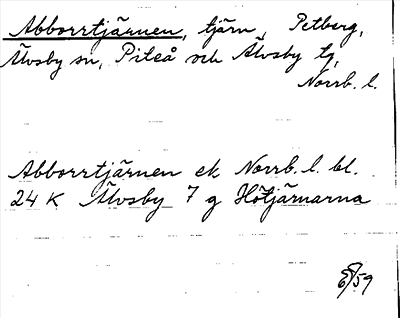 Abborrtjärnen, tjärn, Petberg,
Älvsby sn, Piteå och Älvsby tg,
Norrb. l.
Abborrtjärnen ek Norrb. l. bl.
24 K Älvsby 7 g Hötjärnarna